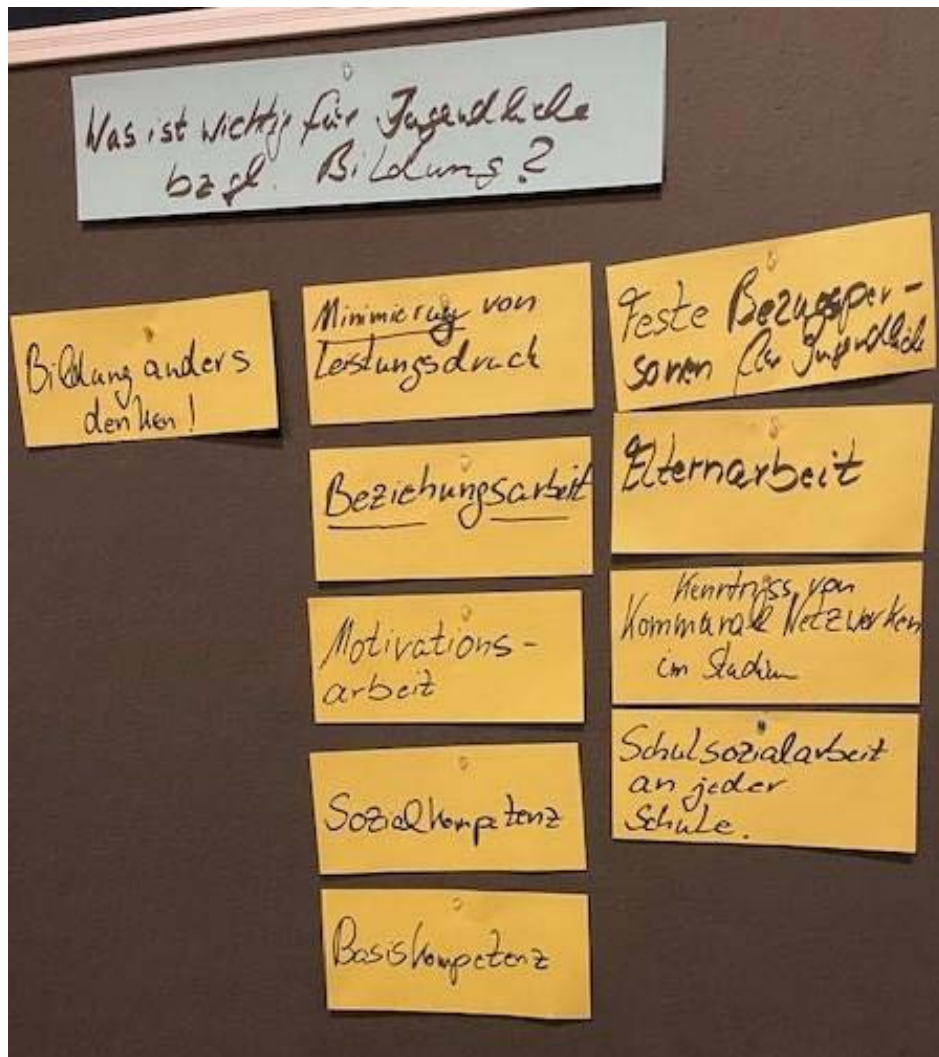 Was ist wichtig für Jugendliche
bzgl. Bildung?
Bildung anders
denken!
Minimierung von
Leistungsdruck
Beziehungsarbeit
Motivations-
arbeit
Sozialkompetenz
Basiskompetenz
Feste Bezugsper-
sonen für Jugendliche
Elternarbeit
Kenntniss von
Kommunale Netzwerken
im Studium
Schulsozialarbeit
an jeder
Schule.